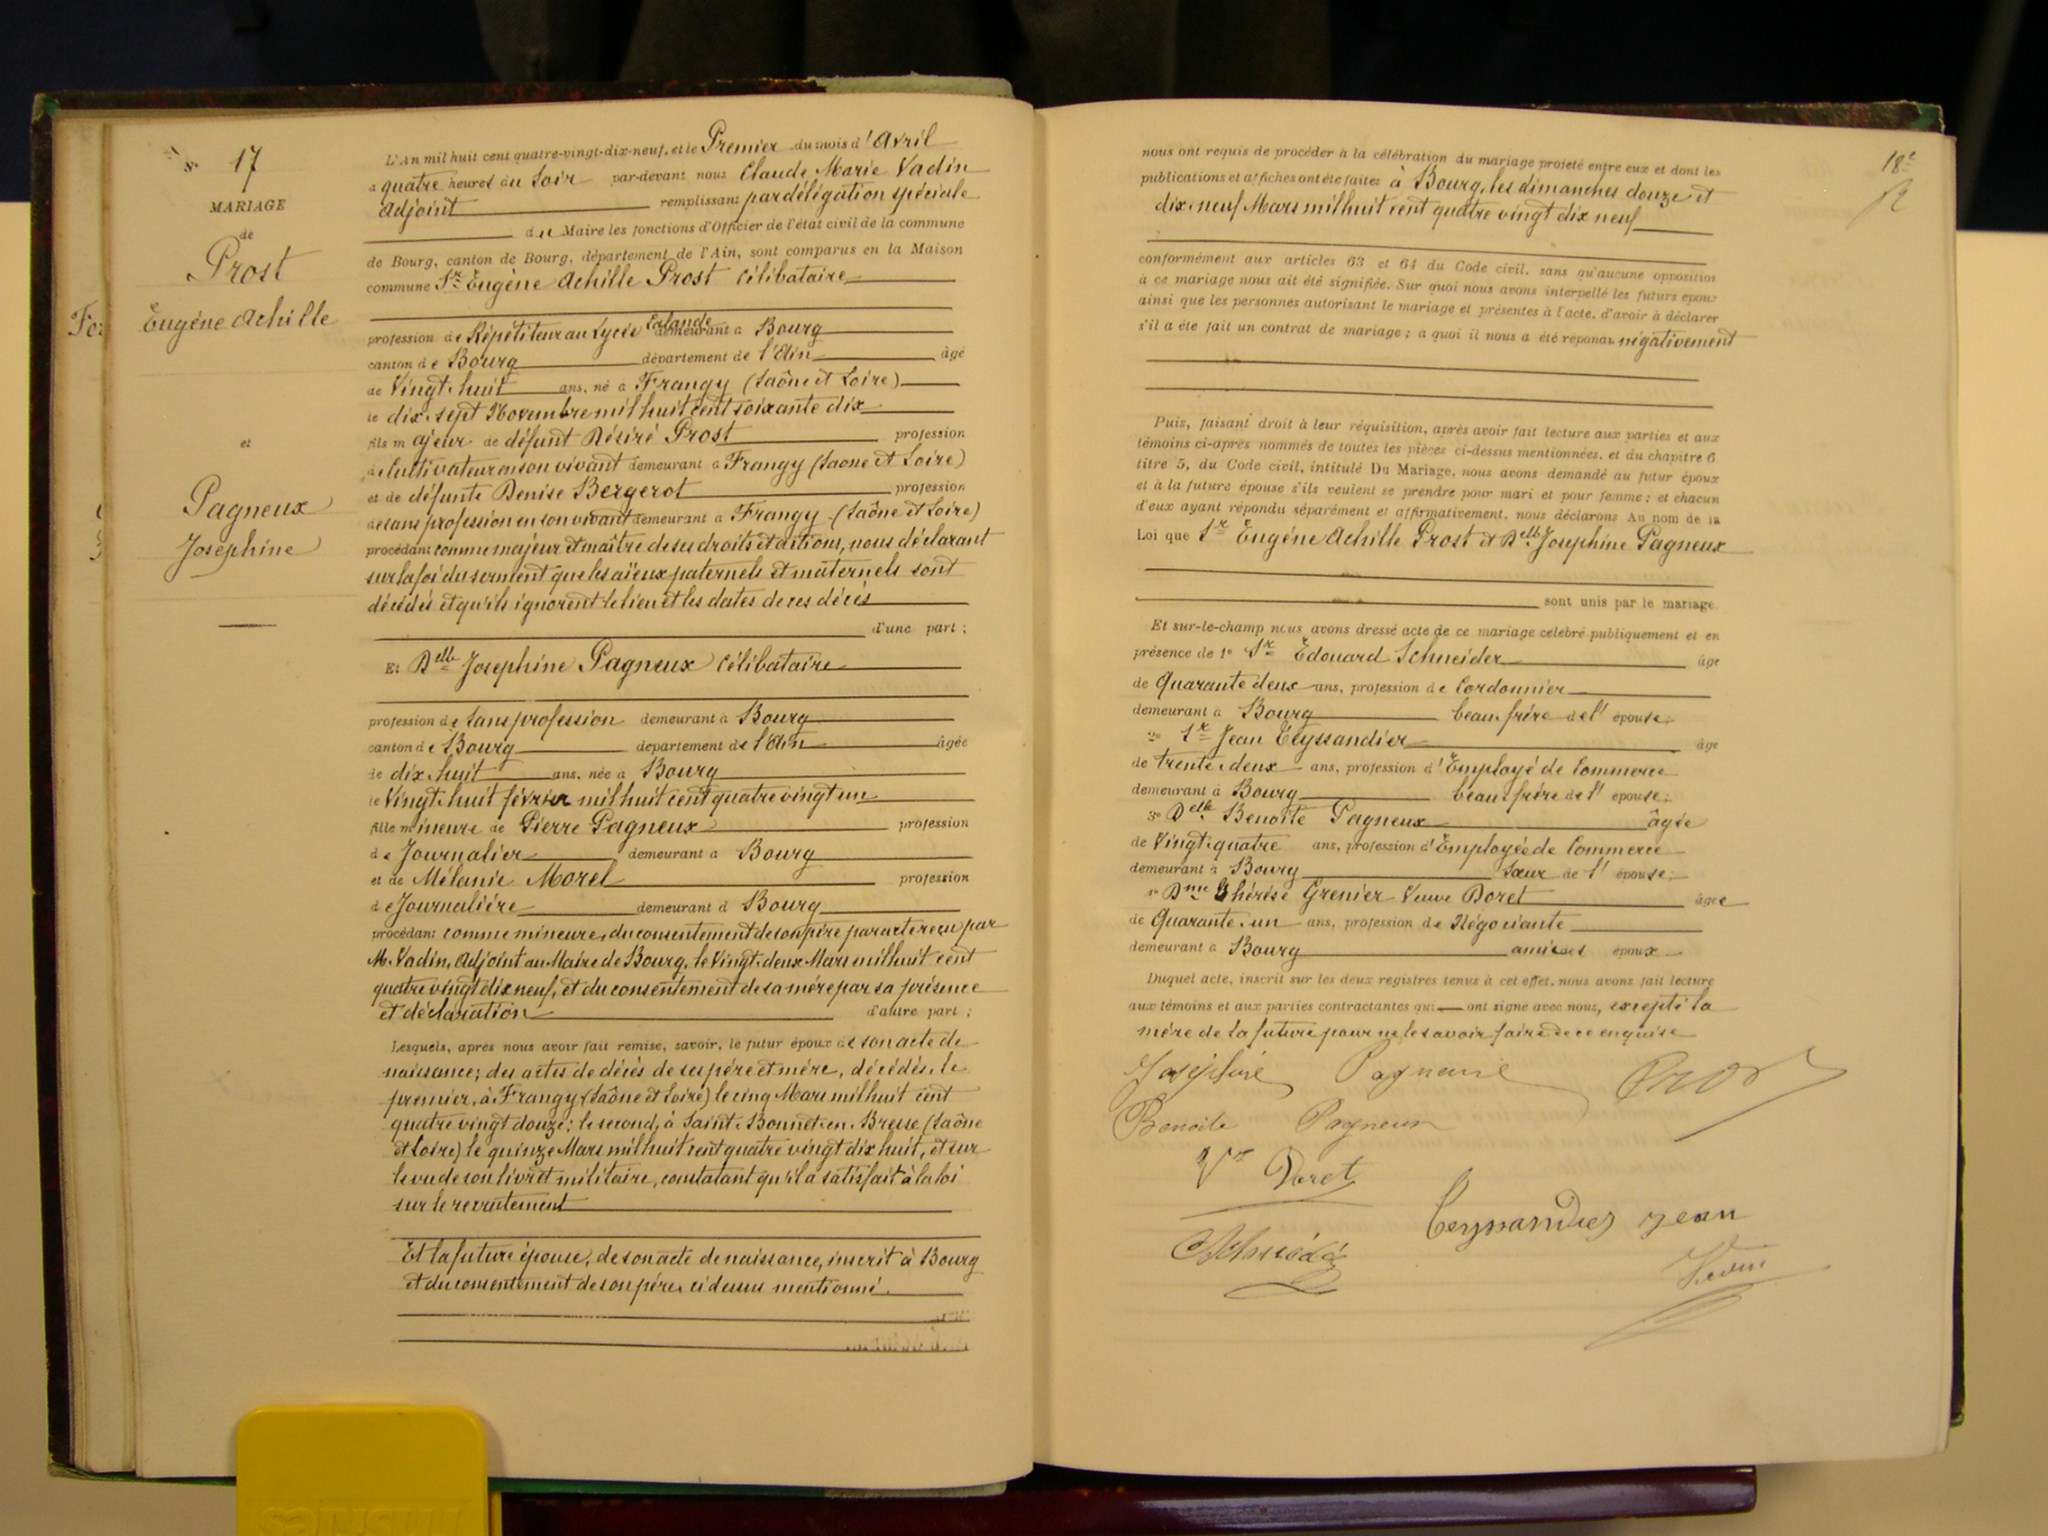 N° 17
MARIAGE
de
Prost
Eugène Achille
et
Pagneux
Joséphine
L'An mil huit cent quatre-vingt-dix-neuf, et le Premier du mois d'Avril
à quatre heures du Soir par-devant nous Claude Marie Vadin
Adjoint remplissant par délégation spéciale
du Maire les fonctions d'Officier de l'état civil de la commune
de Bourg, canton de Bourg, département de l'Ain, sont comparus en la Maison
commune Sr Eugène Achille Prost célibataire
profession de Répétiteur au Lycée Lalande demeurant à Bourg
canton de Bourg département de l'Ain âgé
de Vingt-huit ans, né à Frangy (Saône et Loire)
le dix-sept Novembre mil huit cent soixante dix
fils majeur de défunt Désiré Prost profession
de Cultivateur en son vivant demeurant à Frangy (Saône et Loire)
et de défunte Denise Bergerot profession
de sans profession en son vivant demeurant à Frangy (Saône et Loire)
procédant comme majeur et maître de ses droits et actions, nous déclarant
sur la foi du serment que les aïeux paternels et maternels sont
décédés et qu'ils ignorent le lieu et les dates de ces décès
d'une part ;
Et Delle Joséphine Pagneux célibataire
profession de Sans profession demeurant à Bourg
canton de Bourg département de l'Ain âgée
de dix-huit ans, née à Bourg
le Vingt-huit février mil huit cent quatre vingt un
fille mineure de Pierre Pagneux profession
de Journalier demeurant à Bourg
et de Mélanie Morel profession
de Journalière demeurant à Bourg
procédant comme mineure, du consentement de son père par acte reçu par
M. Vadin, Adjoint au Maire de Bourg, le Vingt-deux Mars mil huit cent
quatre vingt dix neuf, et du consentement de sa mère par sa présence
et déclaration d'autre part ;
Lesquels, après nous avoir fait remise, savoir, le futur époux de son acte de
naissance ; des actes de décès de ses père et mère, décédés, le
premier, à Frangy (Saône et Loire) le cinq Mars mil huit cent
quatre vingt douze ; le second, à Saint-Bonnet-en-Bresse (Saône
et Loire) le quinze Mars mil huit cent quatre vingt dix huit, et sur
le vu de son livret militaire, constatant qu'il a satisfait à la loi
sur le recrutement
Et la future épouse, de son acte de naissance, inscrit à Bourg
et du consentement de son père, ci dessus mentionné.
18e
nous ont requis de procéder à la célébration du mariage projeté entre eux et dont les
publications et affiches ont été faites à Bourg, les dimanches douze et
dix-neuf Mars mil huit cent quatre vingt dix neuf
conformément aux articles 63 et 64 du Code civil, sans qu'aucune opposition
à ce mariage nous ait été signifiée. Sur quoi nous avons interpellé les futurs époux
ainsi que les personnes autorisant le mariage et présentes à l'acte, d'avoir à déclarer
s'il a été fait un contrat de mariage ; à quoi il nous a été répondu négativement
Puis, faisant droit à leur réquisition, après avoir fait lecture aux parties et aux
témoins ci-après nommés de toutes les pièces ci-dessus mentionnées, et du chapitre 6
titre 5, du Code civil, intitulé Du Mariage, nous avons demandé au futur époux
et à la future épouse s'ils veulent se prendre pour mari et pour femme ; et chacun
d'eux ayant répondu séparément et affirmativement, nous déclarons Au nom de la
Loi que Sr Eugène Achille Prost et Delle Joséphine Pagneux
sont unis par le mariage.
Et sur-le-champ nous avons dressé acte de ce mariage célébré publiquement et en
présence de 1° Sr Edouard Schneider âgé
de Quarante deux ans, profession de Cordonnier
demeurant à Bourg beau-frère de l'épouse ;
2° Sr Jean Teyssandier âgé
de trente-deux ans, profession d'Employé de Commerce
demeurant à Bourg beau-frère de l'épouse ;
3° Delle Benoîte Pagneux âgée
de Vingt-quatre ans, profession d'Employée de Commerce
demeurant à Bourg Sœur de l'épouse ;
4° Dme Thérèse Grenier Veuve Doret âgée
de Quarante-un ans, profession de Négociante
demeurant à Bourg amie des époux
Duquel acte, inscrit sur les deux registres tenus à cet effet, nous avons fait lecture
aux témoins et aux parties contractantes qui ont signé avec nous, excepté la
mère de la future pour ne le savoir faire de ce enquise
Joséphine Pagneux Prost
Benoite Pagneux
Ve Doret
Teyssandier Jean
Schneider
Vadin